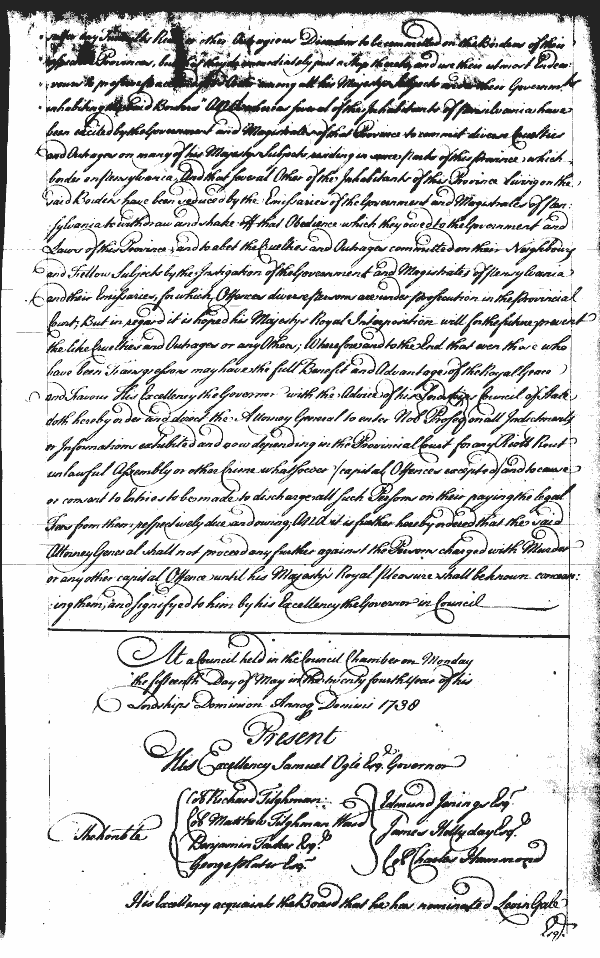 suffer any Tumults Riots or other Outragious Disorders to be committed on the Borders of their
respective Provinces, but they do immediately put a stop thereto and use their utmost Endea
vours to preserve peace and good Order among all his Majestys Subjects under their Government
inhabiting the said Borders" And whereas several of the Inhabitants of Pensilvania have
been excited by the Government and Magistrates of that Province to commit divers Cruelties
and Outrages on many of his Majestys Subjects, residing in some parts of this province, which
border on Pensylvania, And that several Other of the Inhabitants of this Province living on the
said Borders have been seduced by the Emissaries of the Government and Magistrates of Pen:
sylvania to withdraw and shake off that Obedience which they owed to the Government and
Laws of this Province, and to abet the Cruelties and Outrages committed on their Neighbours
and Fellow Subjects by the Instigation of the Government and Magistrates of Pensylvania
and their Emissaries, for which Offences divers persons are under prosecution in the provincial
Court; But in regard it is hoped his Majestys Royal Interposition will for the future prevent
the like Cruelties and Outrages or any Others; Wherefore and to the End that even those who
have been Transgressors may have the full Benefit and Advantage of the Royal Grace
and Favour His Excellency the Governor with the Advice of his Lordships Council of State
doth hereby order and direct the Attorney General to enter Noli Prosequi on all Indictments
or Informations exhibited and now depending in the Provincial Court for any Riots Rout
unlawful Assembly or other Crime whatsoever (capital Offences excepted) and to cause
or consent to Entries to be made to discharge all such Persons on their paying the legal
Fees from them respectively due and owing; And it is further hereby ordered that the said
Attorney General shall not proceed any further against the Persons charged with Murder
or any other capital Offence until his Majestys Royal pleasure shall be known concern:
ing them, and signifyed to him by his Excellency the Governor in Council
At a Council held in the Council Chamber on Monday
the fifteenth Day of May in the twenty fourth Year of his
Lordships Dominion Annoq Domini 1738
Present
His Excellency Samuel Ogle Esqr. Governor
Col Richard Tilghman Edmund Jenings Esqr.
Col. Matthew Tilghman Ward James Hollyday Esqr.
The Honble Benjamin Tasker Esqr. Col Charles Hammond
George Plater Esqr.
His Excellency acquaints the Board that he has nominated Levin Gale
Esqr.